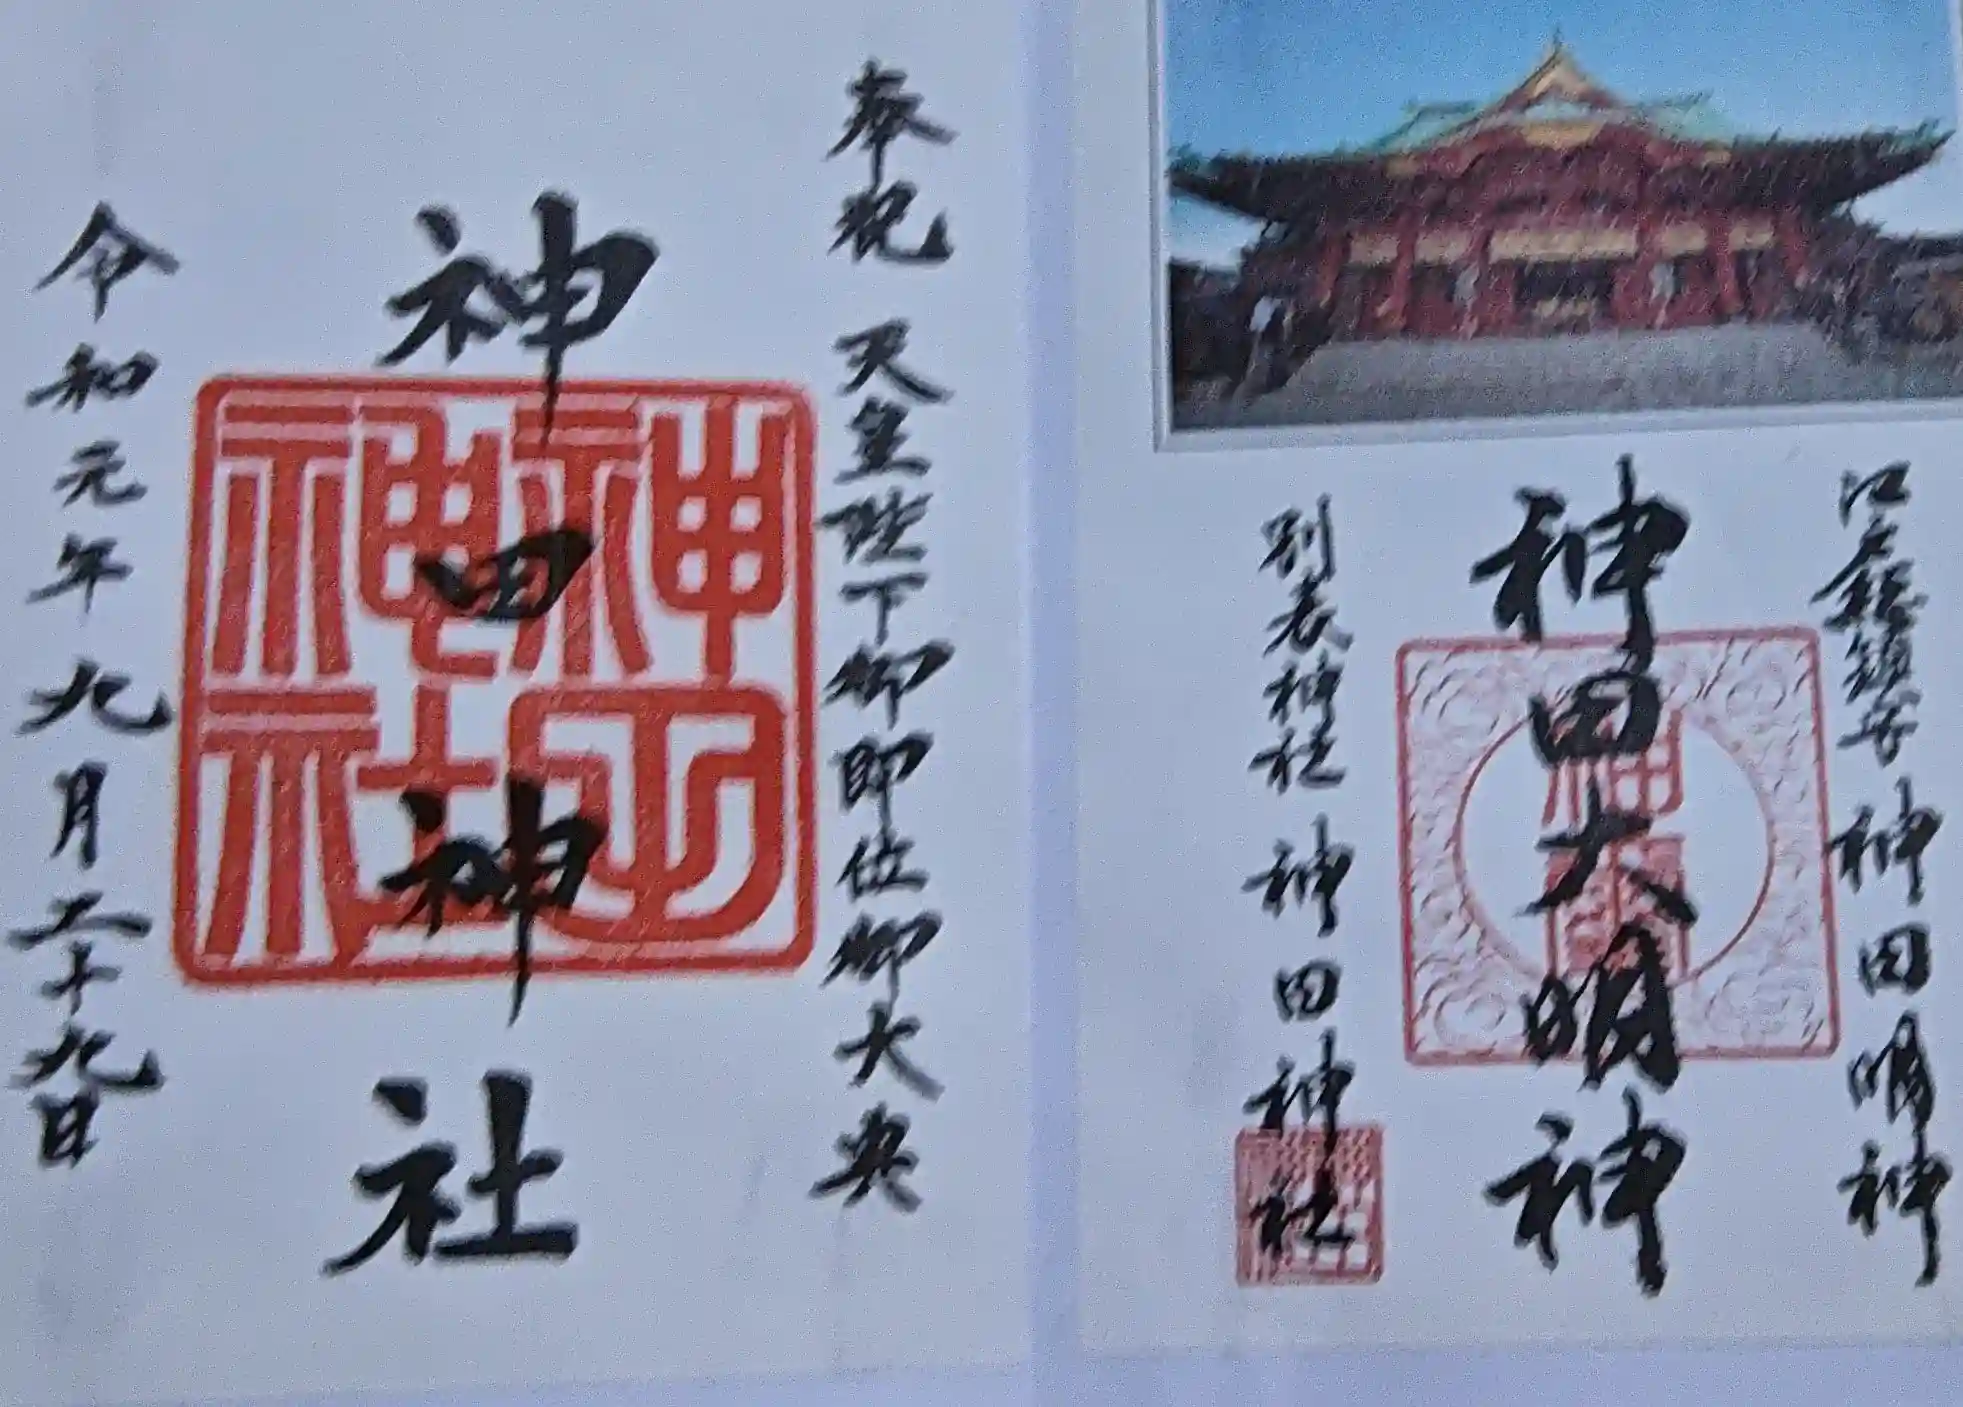 江戸総鎮守 神田明神
神田大明神
別表神社 神田神社
奉祝 天皇陛下御即位御大典
神田神社
令和元年九月二十九日
神田神社